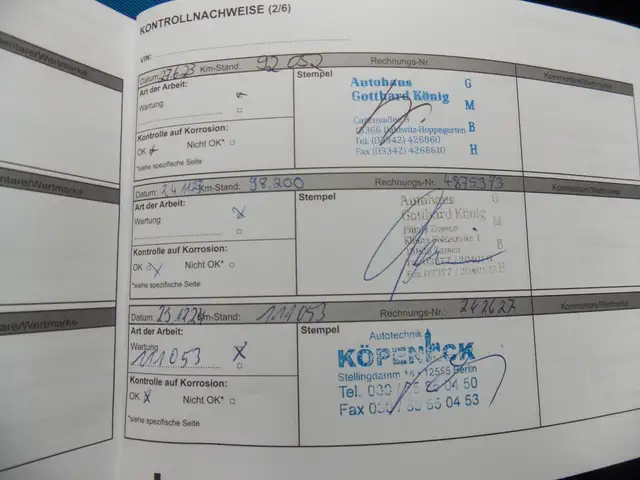 KONTROLLNACHWEISE (2/6)
VIN:
Datum: 27.6.23 Km-Stand: 92 052 Rechnungs-Nr.
Kommentare/Wertmarke
Art der Arbeit:
Wartung
Kontrolle auf Korrosion:
OK Nicht OK*
*siehe spezifische Seite
Stempel
Autohaus G
Gotthard König M
15366 Dahlwitz-Hoppegarten B
Tel. (03342) 426860
Fax (03342) 4268610 H
Datum: Km-Stand: 98.200 Rechnungs-Nr. 4875373
Kommentare/Wertmarke
Art der Arbeit:
Wartung
Kontrolle auf Korrosion:
OK Nicht OK*
*siehe spezifische Seite
Stempel
Autohaus G
Gotthard König M
Filiale Zossen
B
15806 Zossen
H
Datum: 23.12.24 Km-Stand: 111053 Rechnungs-Nr.: 242627
Kommentare/Wertmarke
Art der Arbeit:
Wartung
111053
Kontrolle auf Korrosion:
OK Nicht OK*
*siehe spezifische Seite
Stempel
Autotechnik
KÖPENICK
Stellingdamm 12555 Berlin
Tel. 030 / 65 66 04 50
Fax 030 / 65 66 04 53